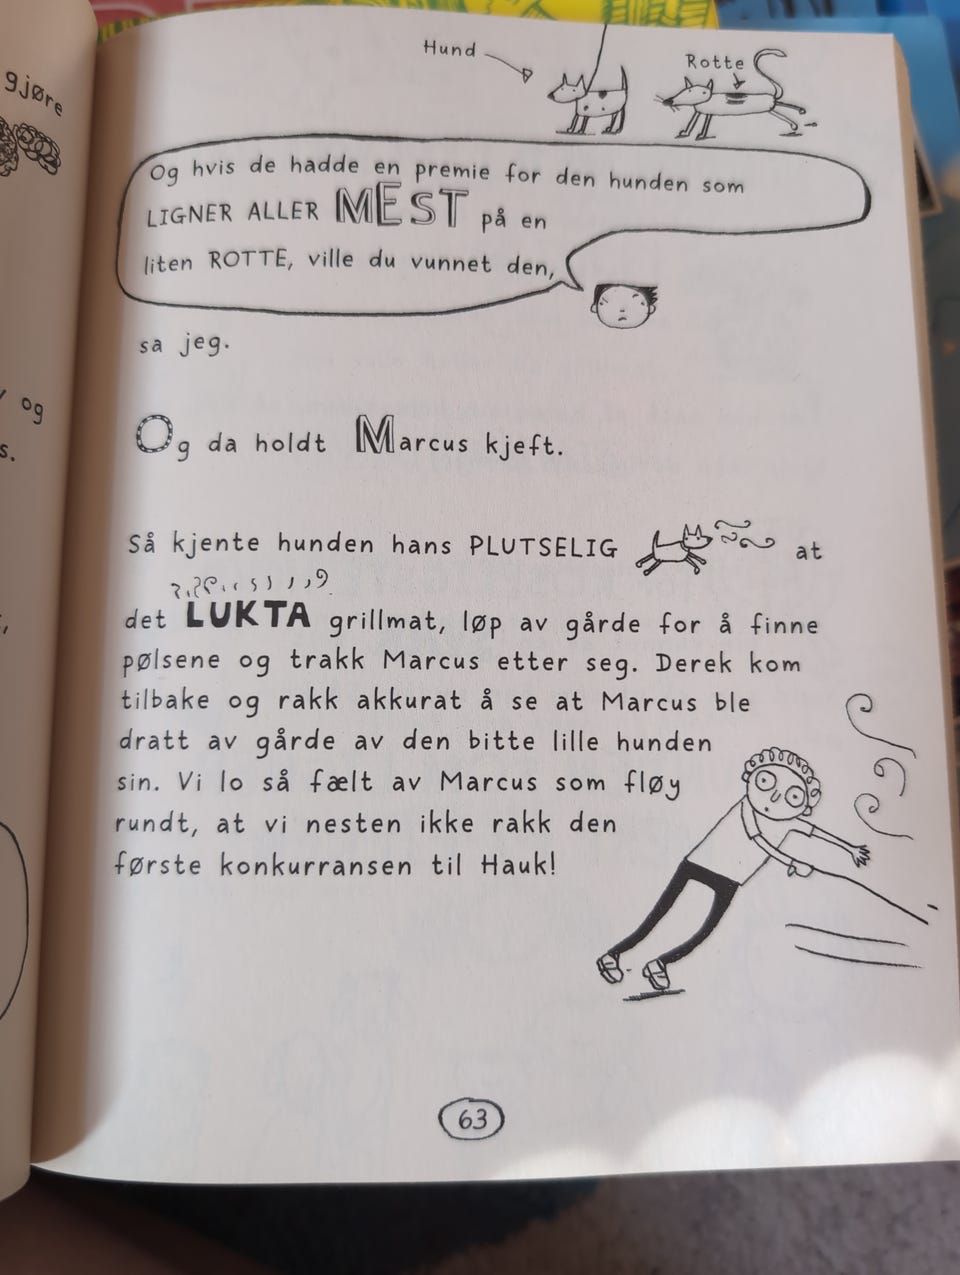 gjøre
og
s.
Hund
Rotte
Og hvis de hadde en premie for den hunden som
LIGNER ALLER MEST på en
liten ROTTE, ville du vunnet den,
sa jeg.
Og da holdt Marcus kjeft.
Så kjente hunden hans PLUTSELIG at
det LUKTA grillmat, løp av gårde for å finne
pølsene og trakk Marcus etter seg. Derek kom
tilbake og rakk akkurat å se at Marcus ble
dratt av gårde av den bitte lille hunden
sin. Vi lo så fælt av Marcus som fløy
rundt, at vi nesten ikke rakk den
første konkurransen til Hauk!
63